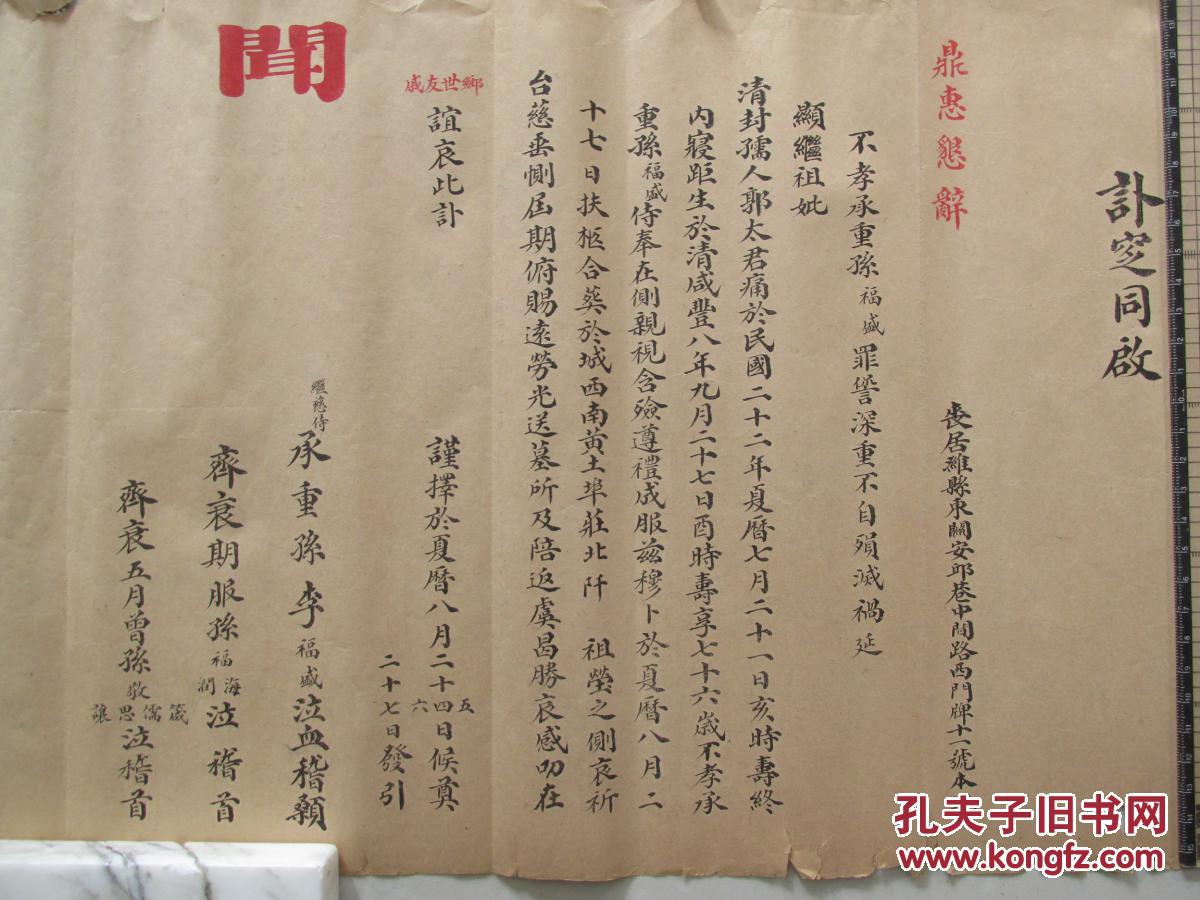 訃窆同啟
鼎惠懇辭
喪居濰縣東關安邱巷中間路西門牌十一號本
不孝承重孫福盛罪孽深重不自殞滅禍延
顯繼祖妣
清封孺人郭太君痛於民國二十二年夏曆七月二十一日亥時壽終
內寢距生於清咸豐八年九月二十七日酉時壽享七十六歲不孝承
重孫福盛侍奉在側親視含殮遵禮成服茲穆卜於夏曆八月二
十七日扶柩合葬於城西南黃土埠莊北阡 祖塋之側哀祈
台慈垂惻屆期俯賜遠勞光送墓所及陪返虞曷勝哀感叨在
鄉世友戚
誼哀此訃
謹擇於夏曆八月二十四五六日候奠
二十七日發引
聞
繼慈侍
承重孫李福盛泣血稽顙
齊衰期服孫福海潤泣稽首
齊衰五月曾孫敬箴儒思讓泣稽首
孔夫子旧书网
www.kongfz.com